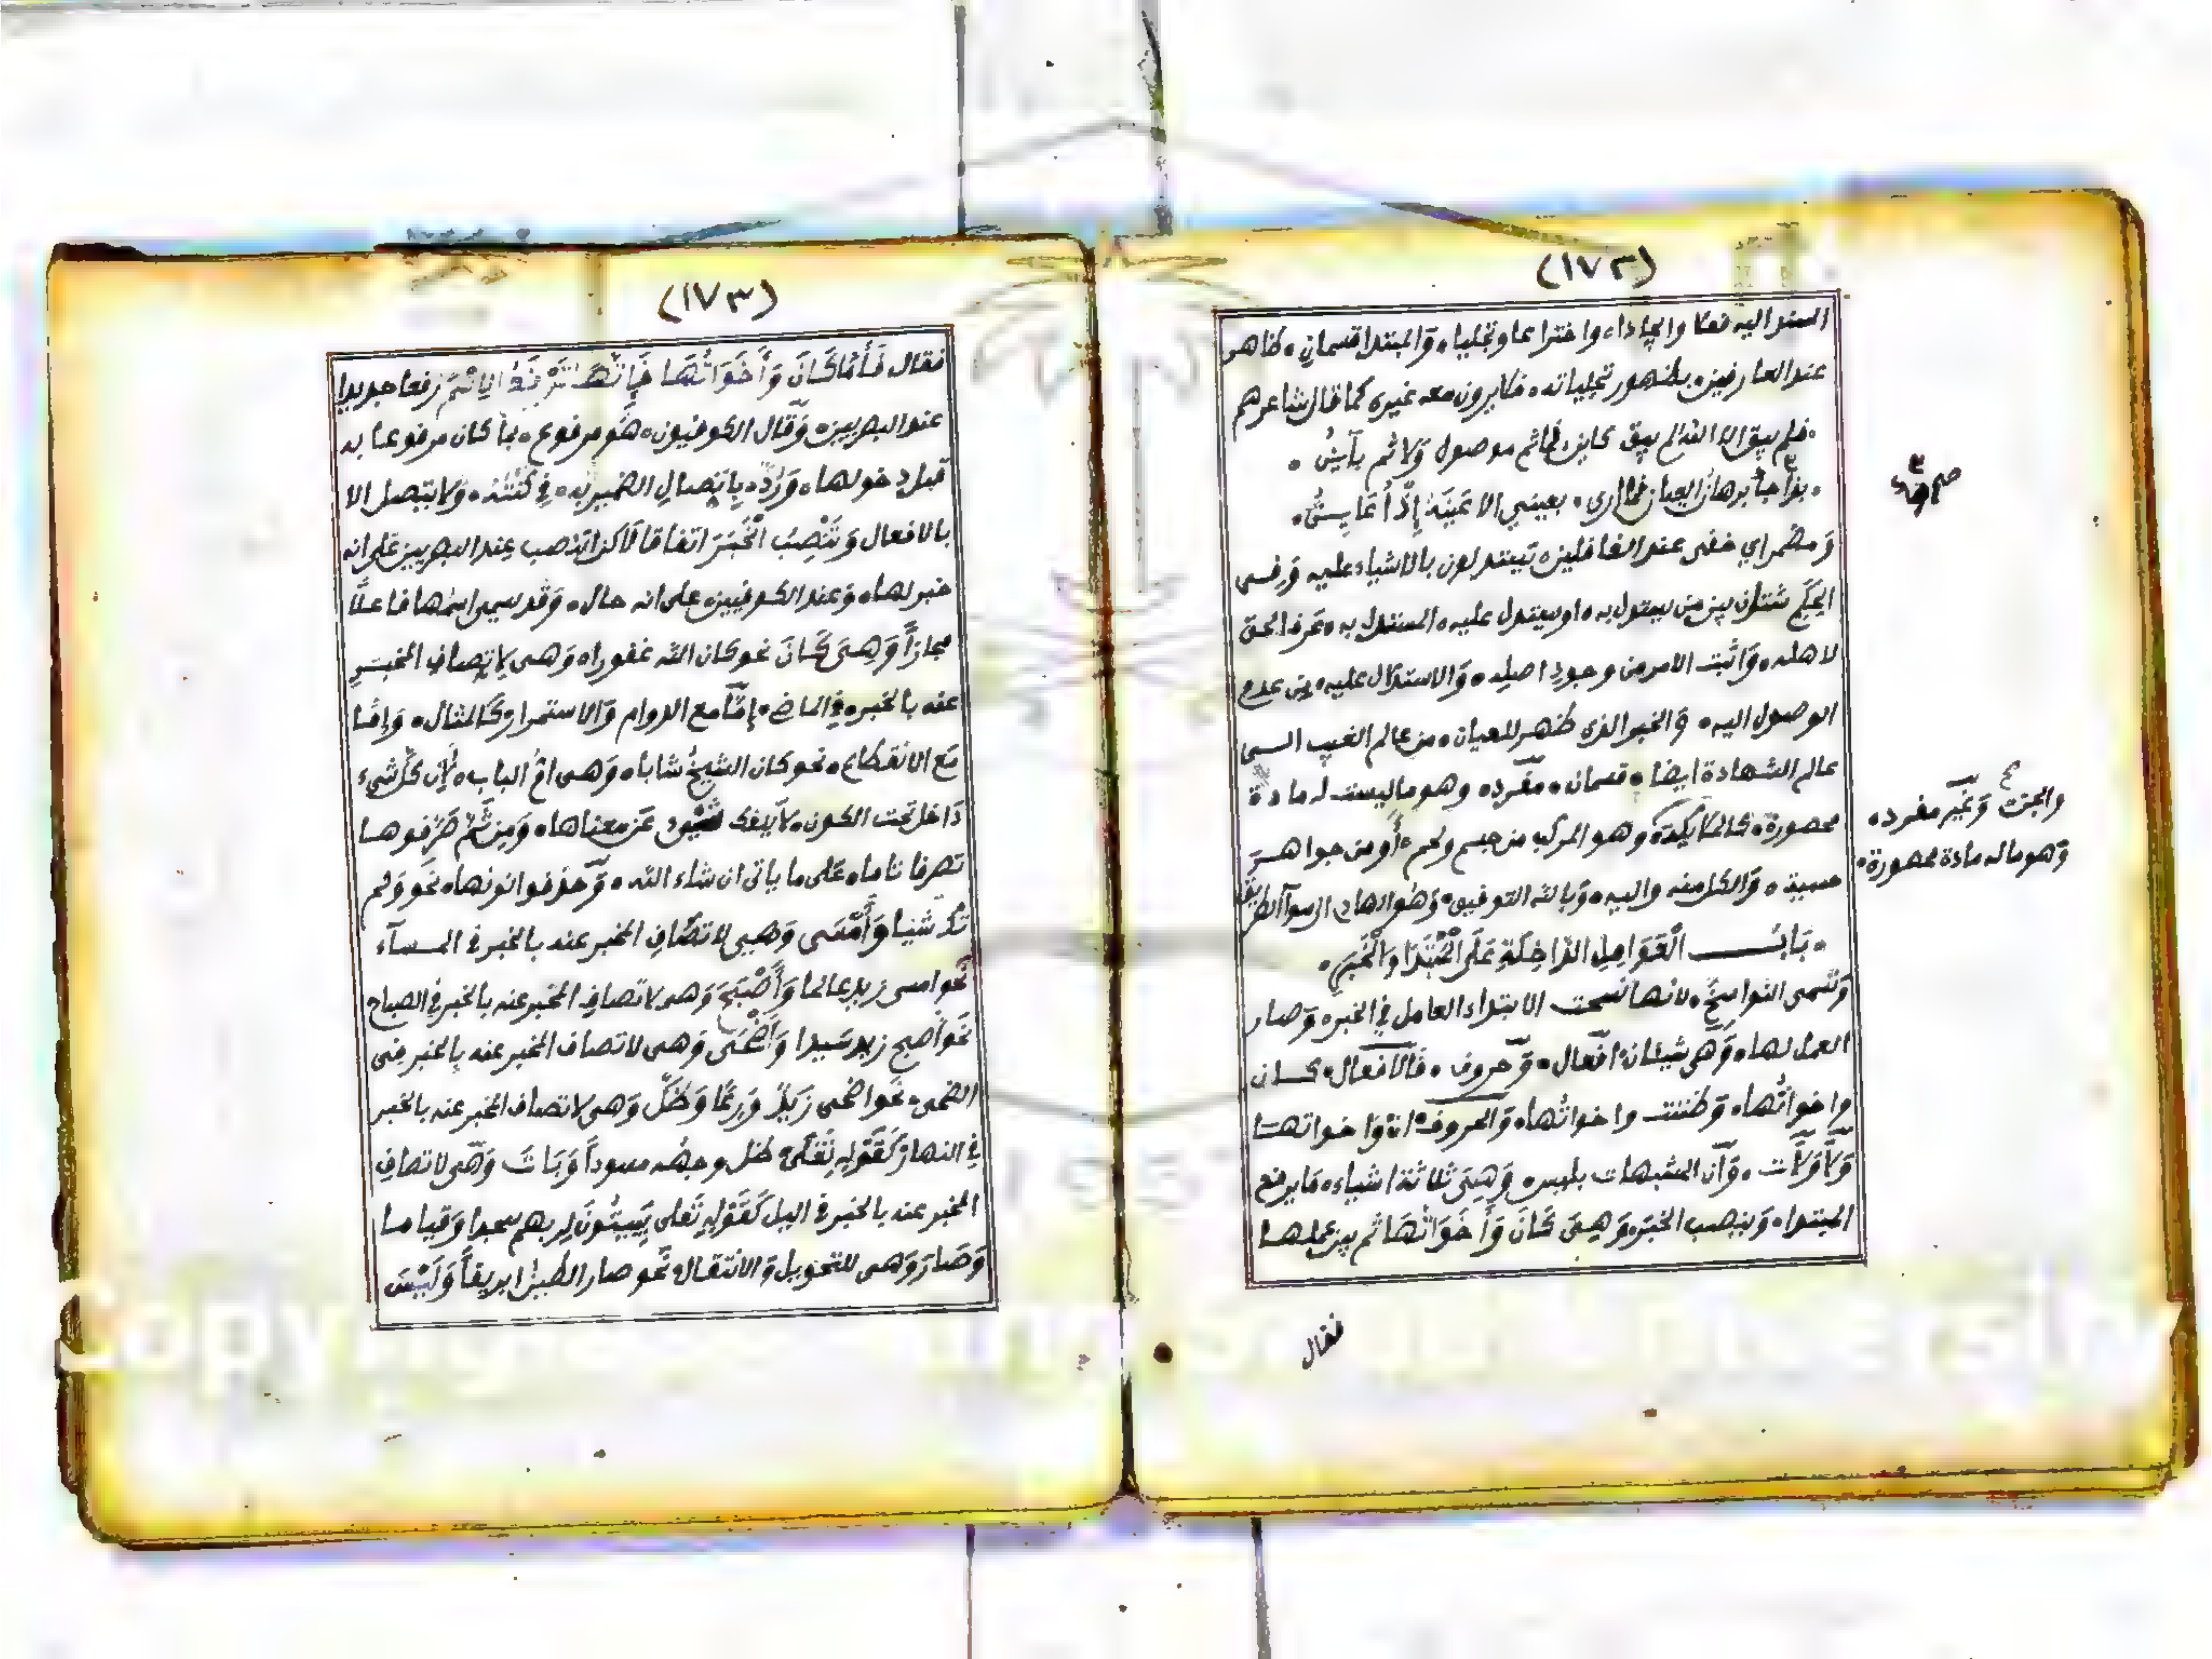 (١٧٢)
المسند اليه فعلا وايجادا، واختراعا وتجليا، وَالمبتدا قسمانِ، ظاهر
عند العارفين، بظهور تجلياته، فلا يرون معه غيره كما قال شاعرهم
،فلم يبق الا الله لم يبق كاين، فما ثم موصول وَلا ثم بآينُ ،
،بذا جآ برهان العيان فما ارى، بعيني الا عَيْنَهُ إِذْ أُعَايِنُ،
وَمضمر اي خفى عند الغافلين، يستدلون بالاشياء عليه وَفى
الحِكَمِ شتان بين من يستدل به، او يستدل عليه، المستدل به، عَرف الحق
لاهله، وَاثبت الامر من وجودِ اصله، وَالاستدلال عليه، من عدم
الوصول اليه، وَالخبر الذي ظهر للعيان، من عالم الغيب الــى
عالم الشهادة ايضا، قسمان، مفرد، وهو ما ليست له مادة
محصورة، كالملايكة، وهو المركب من جسم ولحم، أو من جواهــر
حسية، وَالكل منه واليه، وَبالله التوفيق، وَهو الهادي الى سوآء الطريق
، بَابُ الْعَوَامِلِ الدَّاخِلَةِ عَلَى الْمُبْتَدَا وَالْخَبَرِ،
وَتسمى النواسخُ، لانها نسخت الابتداء العامل في الخبر، وَصار
العمل لها، وَهي شيئان، افعال، وَحروف، فَالافعال، كــان
واخواتُها، وَظننت واخواتُها، وَالحروف، انّ وَاخواتهــا
وَلاَ وَلاَت، وَان المشبهات بليس، وَهِيَ ثلاثة اشياء، مَا يرفع
المبتدا، وَينصب الخبَر، وَهِيَ كَانَ وَأَخَوَاتُهَا ثم بين عملهــا
فقال
صح
والجن، وَغير مفرد،
وَهو ما له مادة محصورة،
(١٧٣)
فقال فَأَمَّا كَانَ وَأَخَوَاتُهَا فَإِنَّهَا تَرْفَعُ الِاسْمَ رفعا جديدا
عند البصريين، وَقال الكوفيون، هُو مرفوع، بما كان مرفوعا به
قبل دخولها، وَرُدَّ، بِاتصالِ الضمير به، في كُنْتُهُ، وَلا يتصل الا
بالافعال وَتَنْصِبُ الْخَبَرَ اتفاقا لَاكن النصب عند البصريين على انه
خبر لها، وَعند الكوفيين، على انه حال، وَقد يسمى اسمُها فاعلًا
مجازاً وَهِيَ كَانَ نحو كان الله غفورا، وَهي لِاتصافِ المخبــرِ
عنه بالخبر، في الماضي، إمَّا مع الدوام وَالاستمرار، كالمثال، وَإمَّا
مَع الانقطاع، نحو كان الشيخُ شابا، وَهي امُّ الباب، لِأن كل شيء
دَاخل تحت الكون، لا ينفك شيء عَن معناها، وَمِن ثَمَّ صَرَّفوهــا
تصرفا تاما، عَلى ما ياتي ان شاء الله، وَحذفوا نونها، نحو وَلم
تَكُ شيئا وَأَمْسَى وَهِي لاتصَافِ المخبر عنه بالخبر في المســآء
نَحو امسى زيد عالما وَأَصْبَحَ وَهي لاتصافِ المخبر عنه بالخبر في الصباح
نحو اصبح زيد سَيدا وَأَضْحَى وَهي لاتصاف المخبر عنه بِالخبر فى
الضحى، نحو اضحى زَيدٌ وَرِعًا وَظَلَّ وَهي لاتصاف المخبر عنه بالخبر
في النهار كَقَوْلِهِ تَعَلَى، ظل وجهُه مسوداً وَبَاتَ وَهي لاتصافِ
المخبر عنه بالخبر في اليل كَقَوْلِهِ تَعَلى يَبِيتُونَ لِربهم سجدا وَقياما
وَصَارَ وَهي للتحويل وَالانتقال، نَحو صار الطينُ ابريقاً وَلَيْسَ